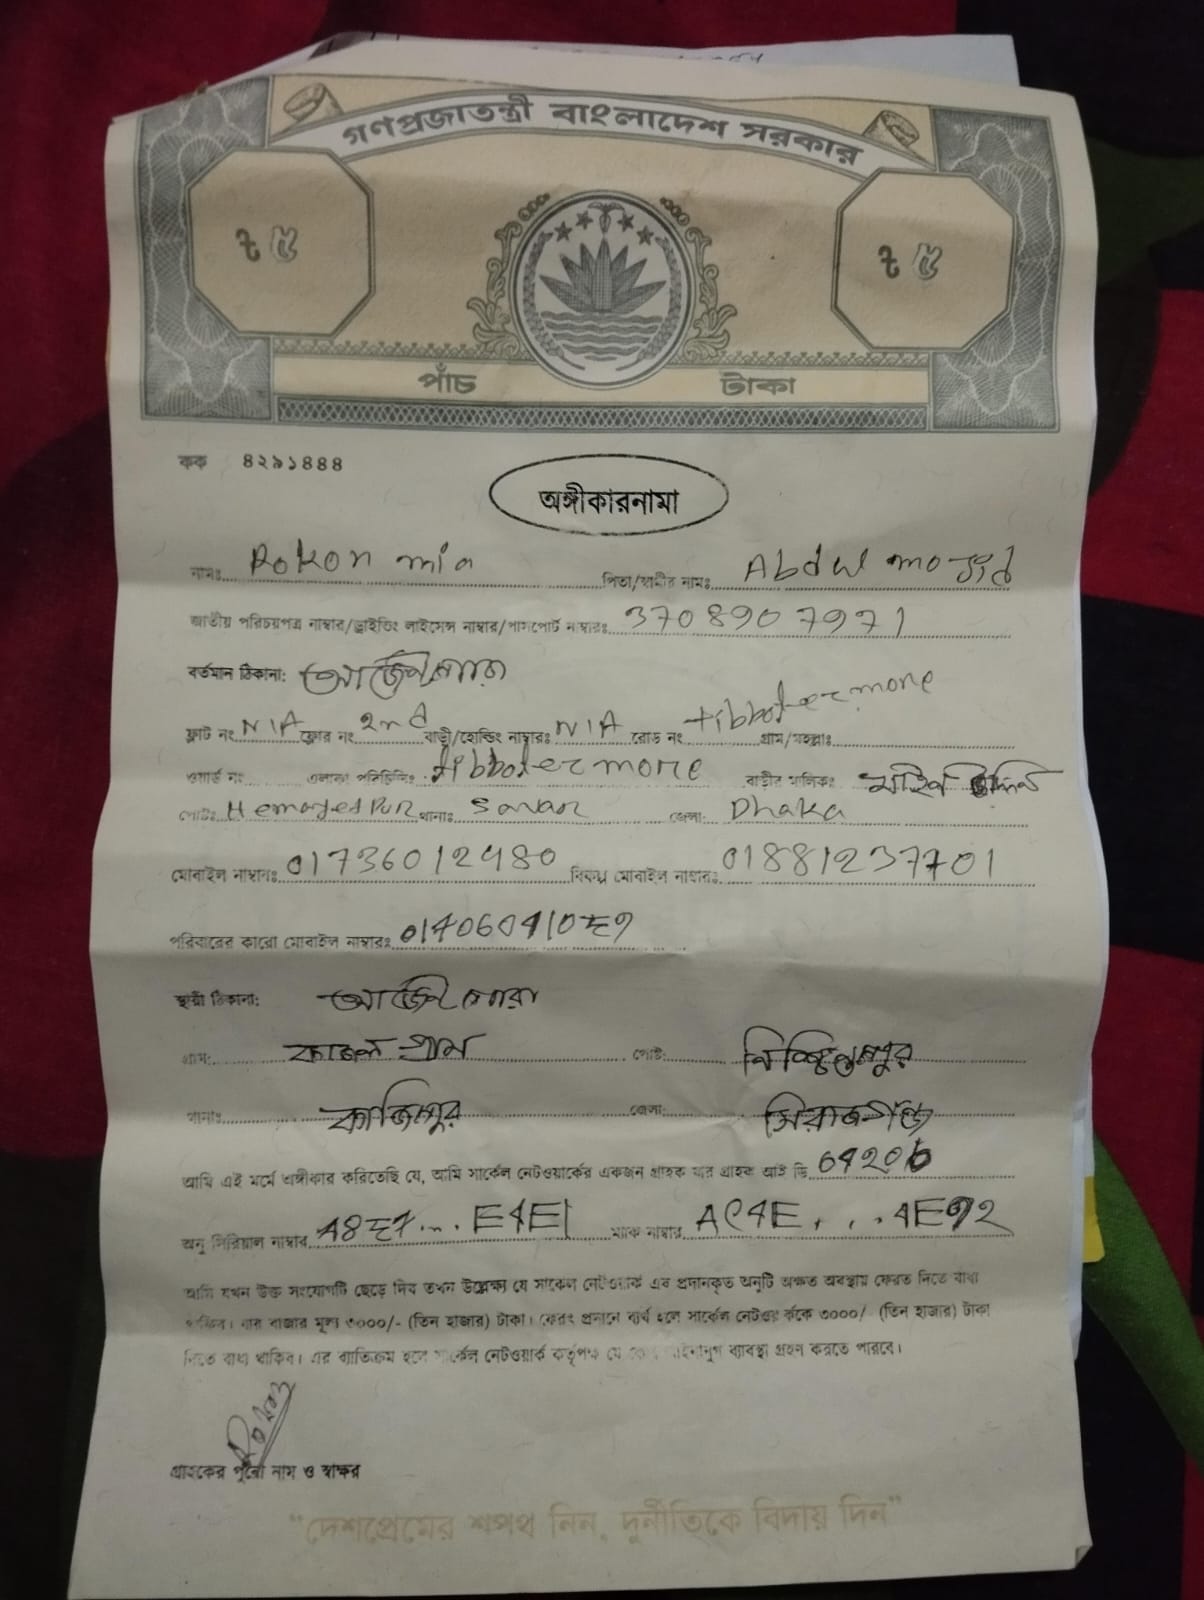 গণপ্রজাতন্ত্রী বাংলাদেশ সরকার
৳ ৫ ৳ ৫
পাঁচ টাকা
কক ৪২৯১৪৪৪
অঙ্গীকারনামা
নামঃ Rokon mia পিতা/স্বামীর নামঃ Abdul mojid
জাতীয় পরিচয়পত্র নাম্বার/ড্রাইভিং লাইসেন্স নাম্বার/পাসপোর্ট নাম্বারঃ 3708907971
বর্তমান ঠিকানা:
ফ্লাট নং N/A ফ্লোর নং 2nd বাড়ী/হোল্ডিং নাম্বারঃ N/A রোড নং tibboter more গ্রাম/মহল্লাঃ
ওয়ার্ড নং এলাকা পরিচিতি: tibboter more বাড়ীর মালিকঃ
পোষ্টঃ Hemayetpur থানাঃ Savar জেলা: Dhaka
মোবাইল নাম্বারঃ 01736012480 বিকল্প মোবাইল নাম্বারঃ 01881237701
পরিবারের কারো মোবাইল নাম্বারঃ
স্থায়ী ঠিকানা:
গ্রাম: পোষ্ট: নিশ্চিন্তপুর
থানাঃ কাজিপুর জেলা: সিরাজগঞ্জ
আমি এই মর্মে অঙ্গীকার করিতেছি যে, আমি সার্কেল নেটওয়ার্কের একজন গ্রাহক যার গ্রাহক আই ডি 64206
অনু সিরিয়াল নাম্বার ম্যাক নাম্বার
আমি যখন উক্ত সংযোগটি ছেড়ে দিব তখন উল্লেক্ষ্য যে সার্কেল নেটওয়ার্ক এর প্রদানকৃত অনুটি অক্ষত অবস্থায় ফেরত দিতে বাধ্য
থাকিব। যার বাজার মূল্য ৩০০০/- (তিন হাজার) টাকা। ফেরৎ প্রদানে ব্যর্থ হলে সার্কেল নেটওয়ার্ককে ৩০০০/- (তিন হাজার) টাকা
দিতে বাধ্য থাকিব। এর ব্যাতিক্রম হলে সার্কেল নেটওয়ার্ক কর্তৃপক্ষ যে কোন আইনানুগ ব্যাবস্থা গ্রহন করতে পারবে।
Rokon
গ্রাহকের পুরো নাম ও স্বাক্ষর
"দেশপ্রেমের শপথ নিন, দুর্নীতিকে বিদায় দিন"